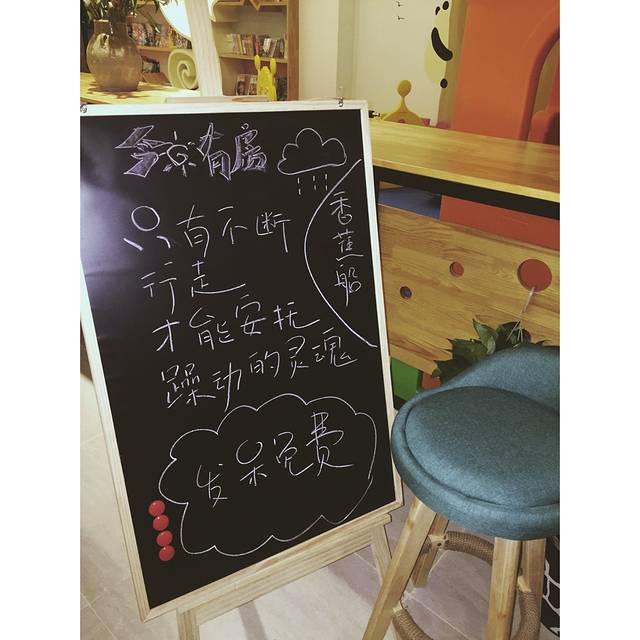 只有不断
行走
才能安抚
躁动的灵魂
香蕉船
发呆免费